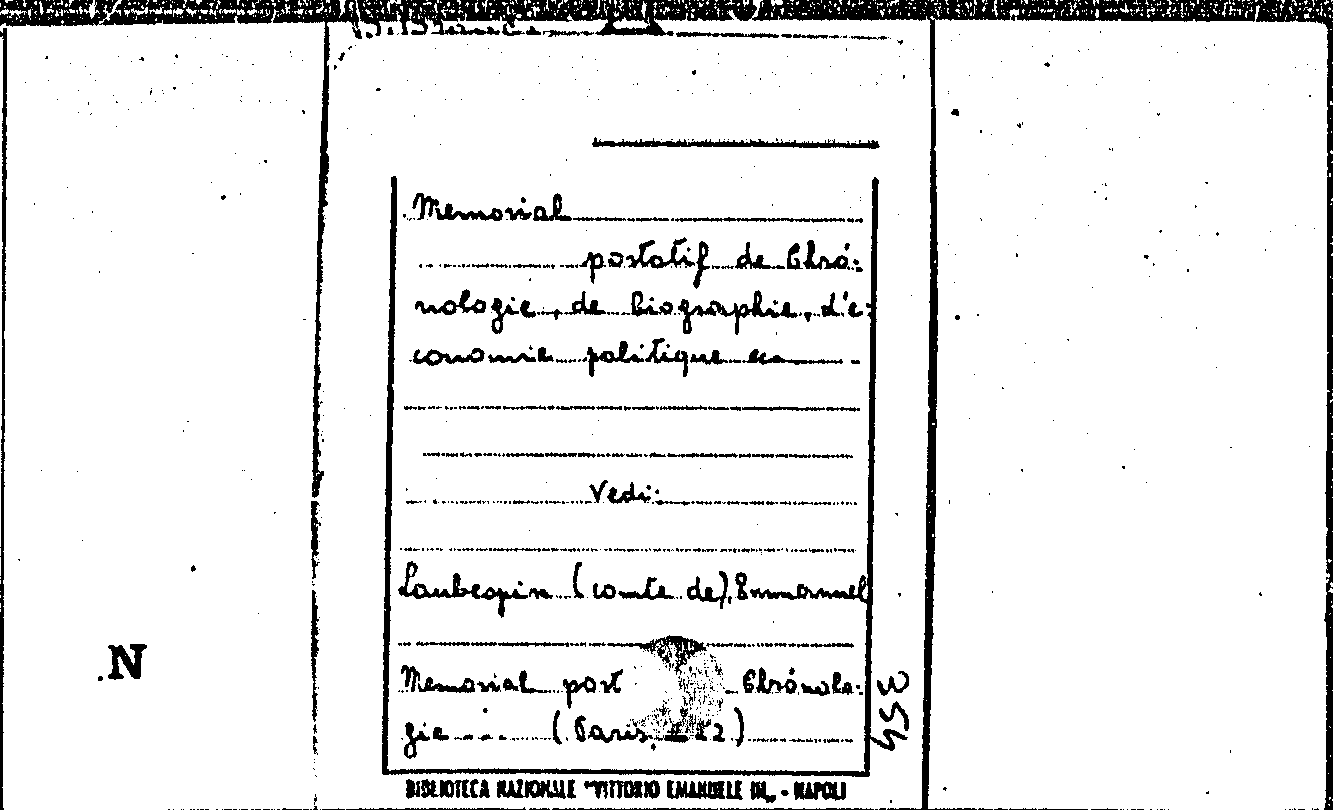 Memorial
portatif de Chró:
nologie, de biographie, d'e:
conomie politique ecc
Vedi:
Laubespin (comte de), Emmanuel
Memorial port Chrónolo:
gie ... (Paris,
N
354
BIBLIOTECA NAZIONALE "VITTORIO EMANUELE III„ - NAPOLI